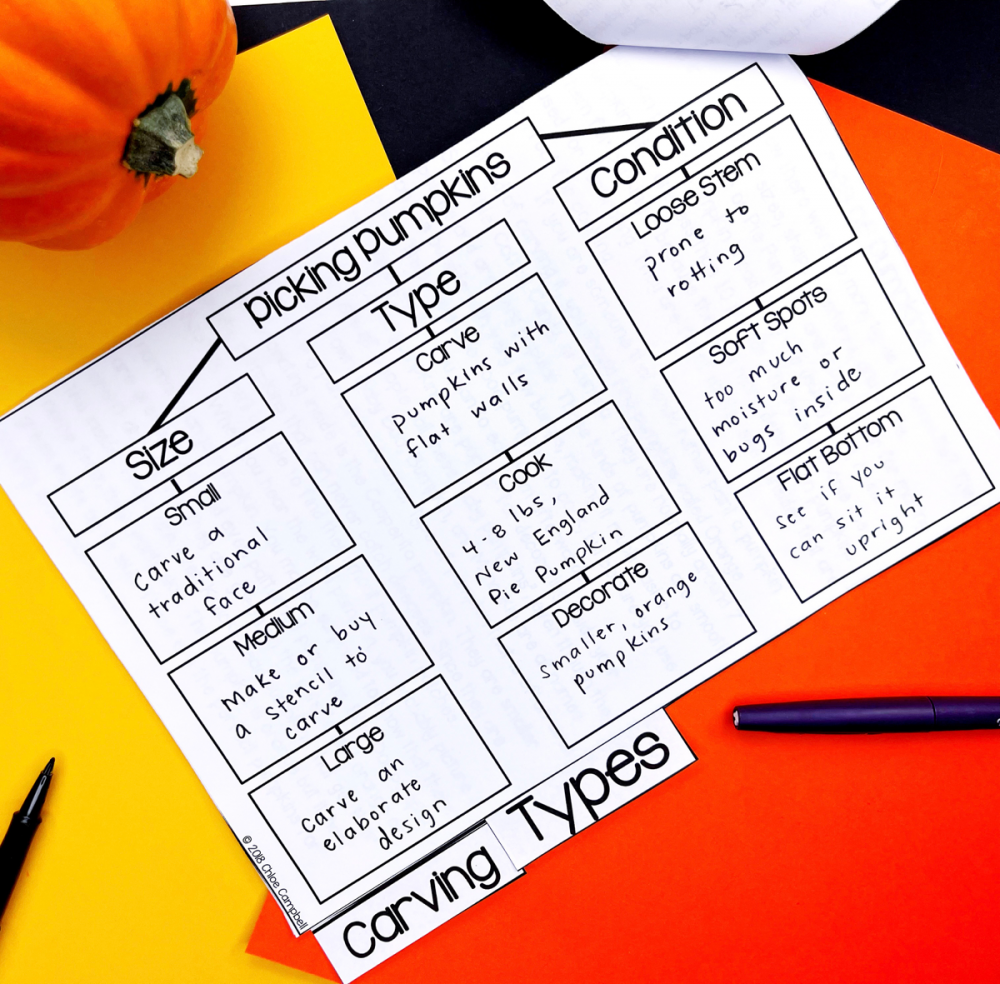 picking pumpkins
Size
Small
carve a
traditional
face
Medium
make or buy
a stencil to
carve
Large
carve an
elaborate
design
Type
Carve
pumpkins with
flat walls
Cook
4-8 lbs,
New England
Pie Pumpkin
Decorate
smaller, orange
pumpkins
Condition
Loose Stem
prone to
rotting
Soft Spots
too much
moisture or
bugs inside
Flat Bottom
see if you
can sit it
upright
© 2018 Chloe Campbell
Carving
Types